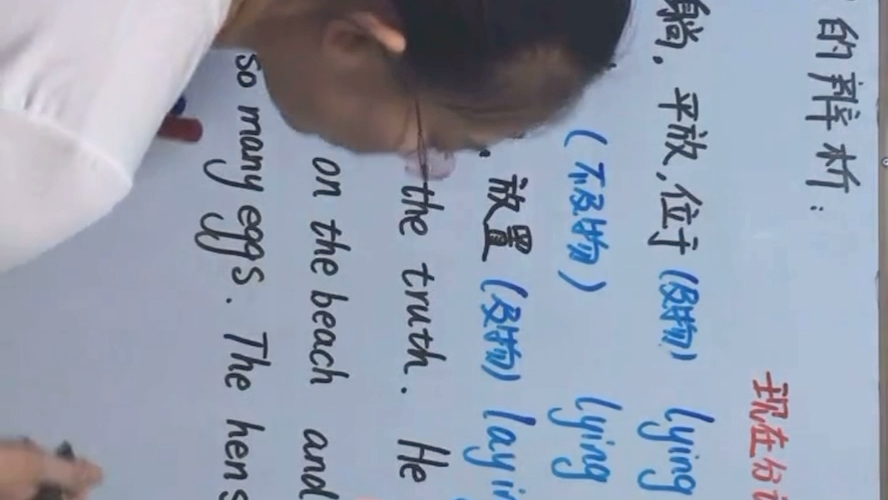 的辩析：
现在分
躺，平放，位于(及物) lying
(不及物) lying
放置(及物) layi
the truth. He
on the beach and
so many eggs. The hens